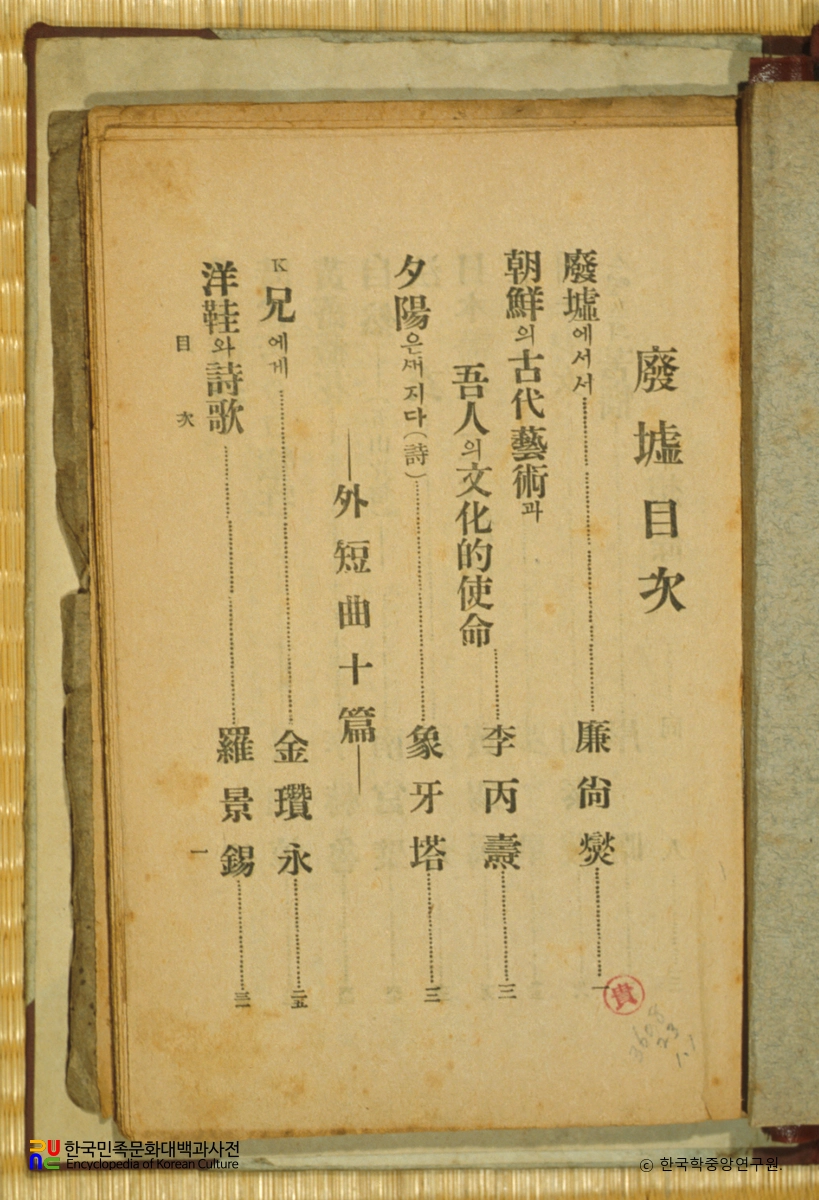 廢墟目次
廢墟에서서……廉尙燮……一
朝鮮의古代藝術과
吾人의文化的使命……李丙燾……三
夕陽은새지다(詩)……象牙塔……三
―外短曲十篇―
K兄에게……金瓚永……二五
洋鞋와詩歌……羅景錫
目次 一
貴
3608
23
1.1
한국민족문화대백과사전
Encyclopedia of Korean Culture
© 한국학중앙연구원